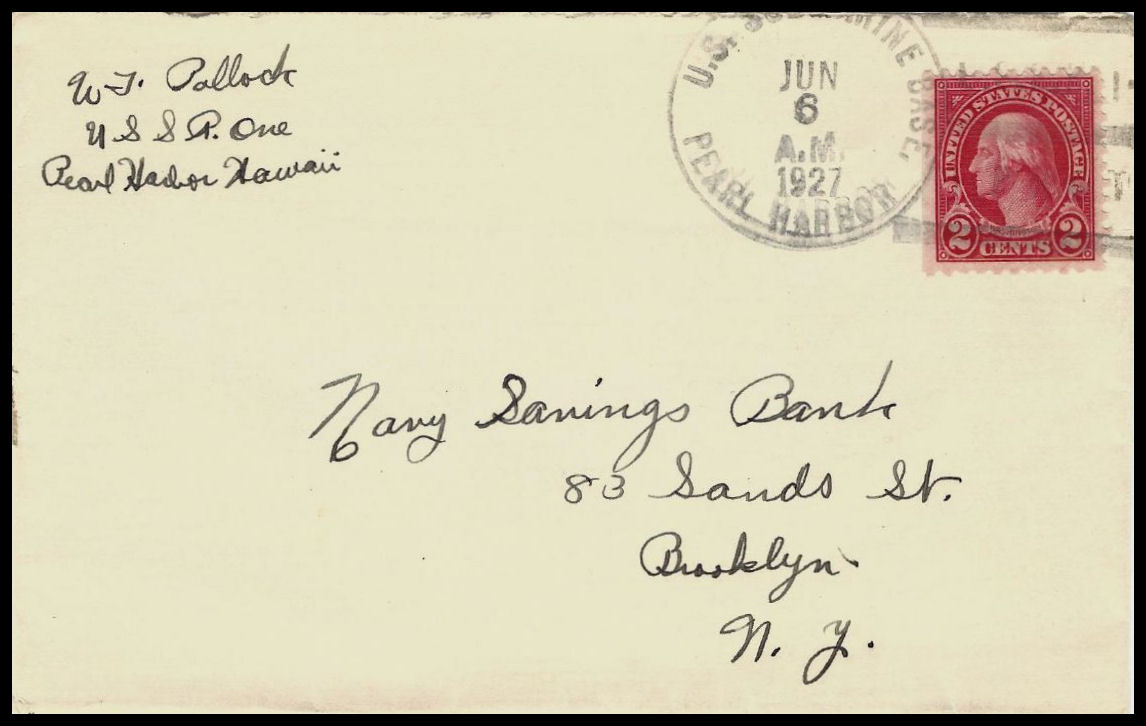 W. F. Pollock
U S S R. One
Pearl Harbor Hawaii
U.S. SUBMARINE BASE,
JUN
6
A.M.
1927
PEARL HARBOR
UNITED STATES POSTAGE
2 CENTS 2
Navy Savings Bank
83 Sands St.
Brooklyn
N. Y.